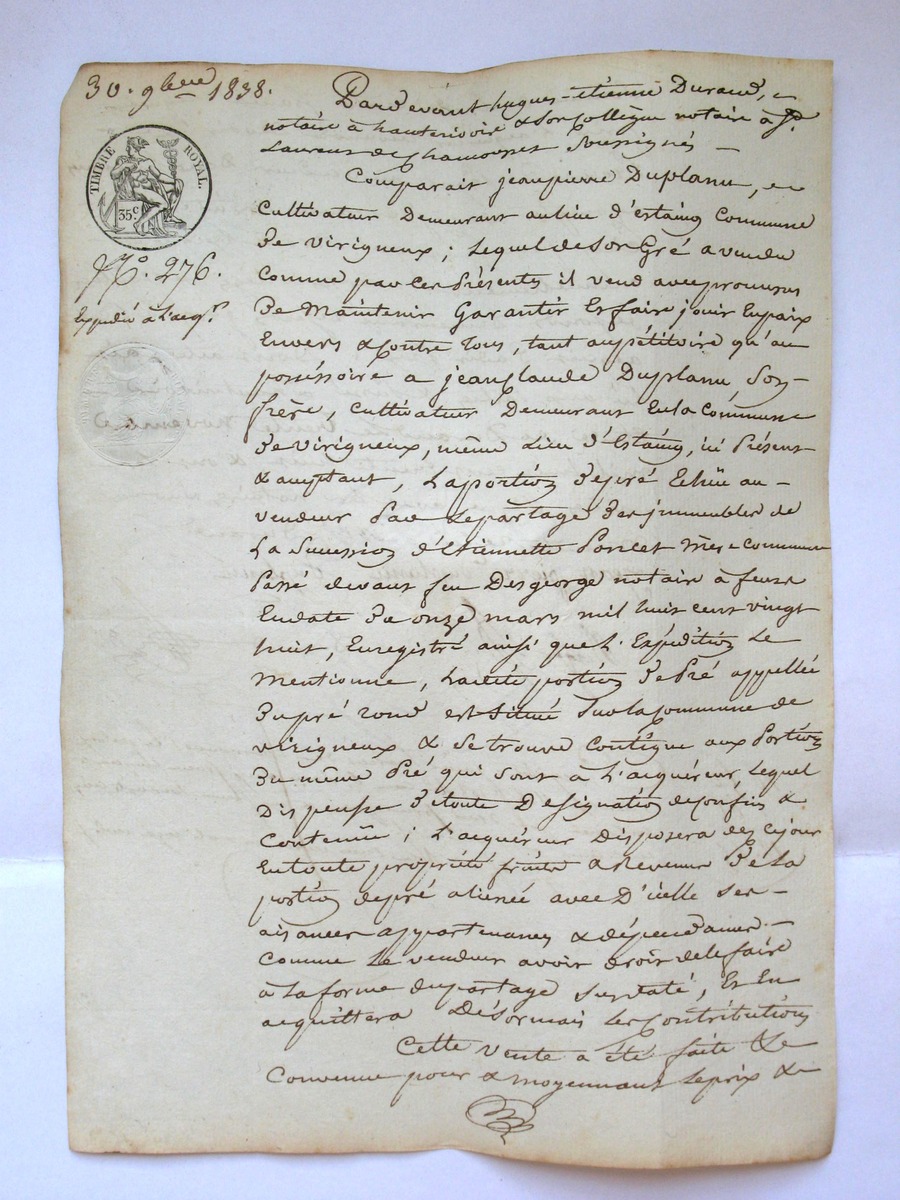 30. 9bre 1838.
TIMBRE ROYAL.
35c
No. 276.
Expédié à l'acqr.
Pardevant hugues-étienne Durand,
notaire à hauterivoire & Son Collègue notaire à St.
Laurent de Chamousset Soussignés —
Comparait jean pierre Duplanu,
Cultivateur Demeurant au lieu d'estaing Commune
De virigneux ; Lequel de Son Gré a vendu
Comme par ces Présentes il vend avec promesses
De Maintenir Garantir Et faire jouir En paix
Envers & Contre Tous, tant au pétitoire qu'au
possessoire a jean Claude Duplanu, Son
frère, Cultivateur Demeurant En la Commune
De virigneux, même Lieu d'Estaing, ici Présent
& acceptant, La portion De pré Echüe au -
vendeur Par Le partage Des jmmeubles de
La Succession d'Etiennette Poncet Mère Commune
Passé devant feu Desgeorge notaire à feurs
En date De onze mars mil huit cent vingt
huit, Enregistré ainsi que L'Expédition Le
Mentionne, Ladite portion De Pré appellée
Du pré rond est Située Sur la Commune de
virigneux & Se trouve Contigüe aux Portions
Du même Pré qui Sont à L'acquéreur, Lequel
Dispense De toute Désignation de Confins &
Contenüe ; L'acquéreur Disposera dès ce jour
En toute propriété fruits & Revenus De La
portion de pré aliénée avec D'icelle Ses -
aisances appartenances & dépendances -
Comme Le vendeur avoit droit de le faire
à La forme du partage Susdaté, Et En
acquittera Désormais Les Contributions
Cette vente a été faite &
Convenue pour & moyennant Le prix de